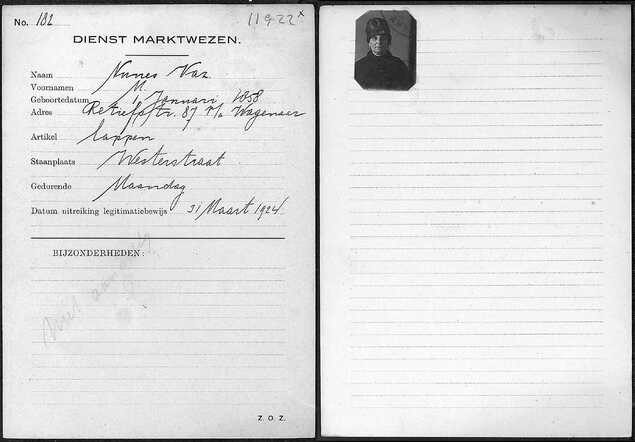 No. 182 11922 x
DIENST MARKTWEZEN.
Naam Nunes Vaz
Voornamen M.
Geboortedatum 1 Januari 1858
Adres Retiefstr. 87 v/a Wagenaar
Artikel lappen
Staanplaats Westerstraat
Gedurende Maandag
Datum uitreiking legitimatiebewijs 31 Maart 1924
BIJZONDERHEDEN:
Niet
Z. O. Z.